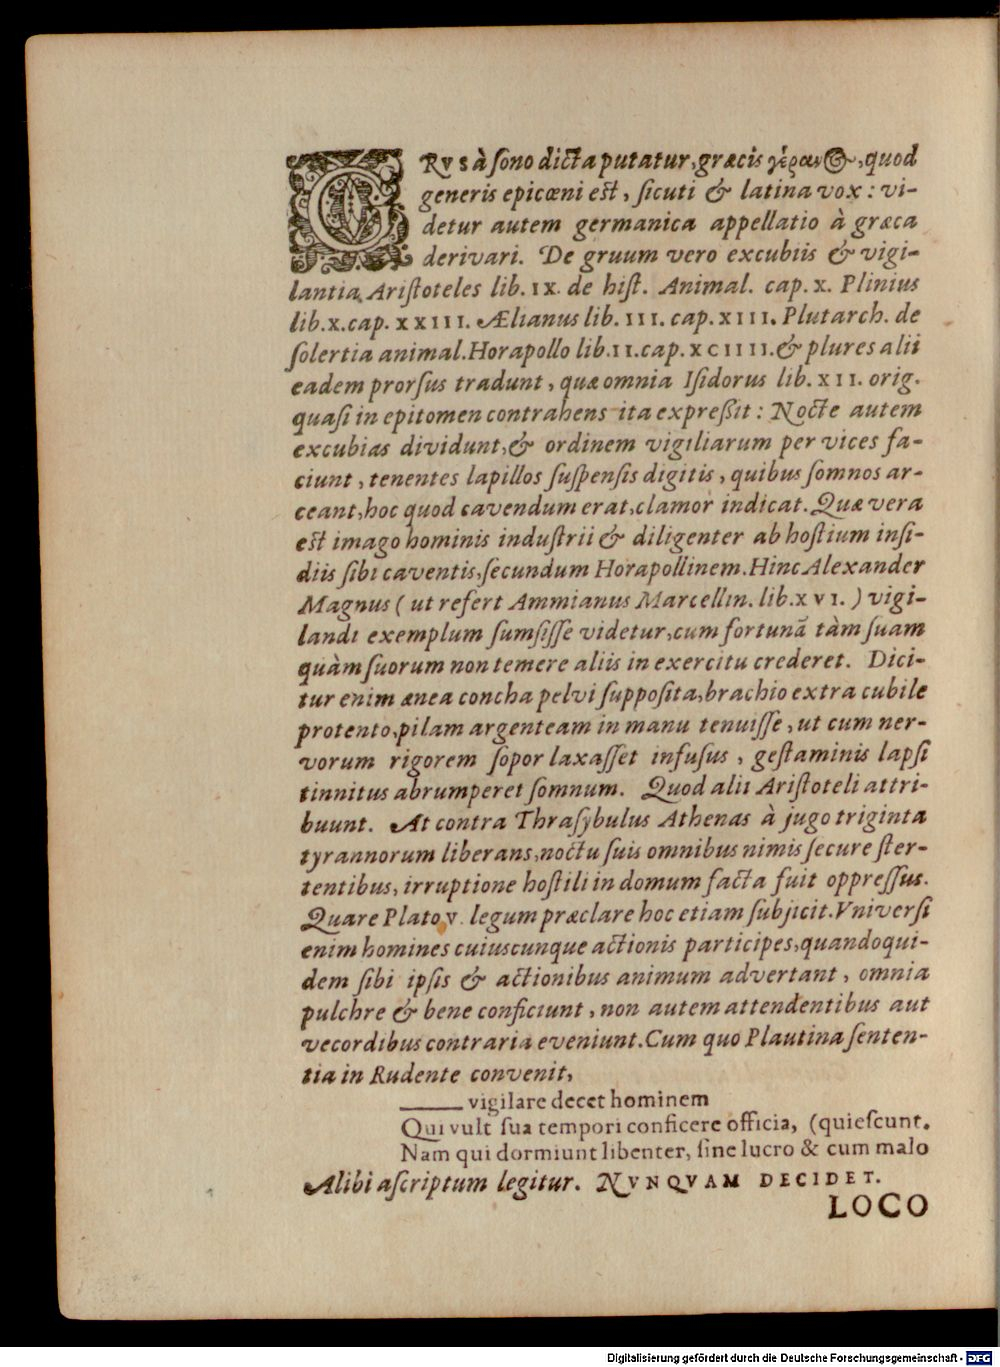 GRVS à sono dicta putatur, græcis γέρανος, quod
generis epicœni est, sicuti & latina vox: vi-
detur autem germanica appellatio à græca
derivari. De gruum vero excubiis & vigi-
lantia Aristoteles lib. IX. de hist. Animal. cap. X. Plinius
lib. X. cap. XXIII. Ælianus lib. III. cap. XIII. Plutarch. de
solertia animal. Horapollo lib. II. cap. XCIIII. & plures alii
eadem prorsus tradunt, quæ omnia Isidorus lib. XII. orig.
quasi in epitomen contrahens ita expreßit: Nocte autem
excubias dividunt, & ordinem vigiliarum per vices fa-
ciunt, tenentes lapillos suspensis digitis, quibus somnos ar-
ceant, hoc quod cavendum erat, clamor indicat. Quæ vera
est imago hominis industrii & diligenter ab hostium insi-
diis sibi caventis, secundum Horapollinem. Hinc Alexander
Magnus ( ut refert Ammianus Marcellin. lib. XVI. ) vigi-
landi exemplum sumsisse videtur, cum fortunã tàm suam
quàm suorum non temere aliis in exercitu crederet. Dici-
tur enim ænea concha pelvi supposita, brachio extra cubile
protento, pilam argenteam in manu tenuisse, ut cum ner-
vorum rigorem sopor laxasset infusus, gestaminis lapsi
tinnitus abrumperet somnum. Quod alii Aristoteli attri-
buunt. At contra Thrasybulus Athenas à jugo triginta
tyrannorum liberans, noctu suis omnibus nimis secure ster-
tentibus, irruptione hostili in domum facta fuit oppressus.
Quare Plato V. legum præclare hoc etiam subjicit. Vniversi
enim homines cuiuscunque actionis participes, quandoqui-
dem sibi ipsis & actionibus animum advertant, omnia
pulchre & bene conficiunt, non autem attendentibus aut
vecordibus contraria eveniunt. Cum quo Plautina senten-
tia in Rudente convenit,
——— vigilare decet hominem
Qui vult sua tempori conficere officia, (quiescunt.
Nam qui dormiunt libenter, sine lucro & cum malo
Alibi ascriptum legitur. NVNQVAM DECIDET.
LOCO
Digitalisierung gefördert durch die Deutsche Forschungsgemeinschaft - DFG